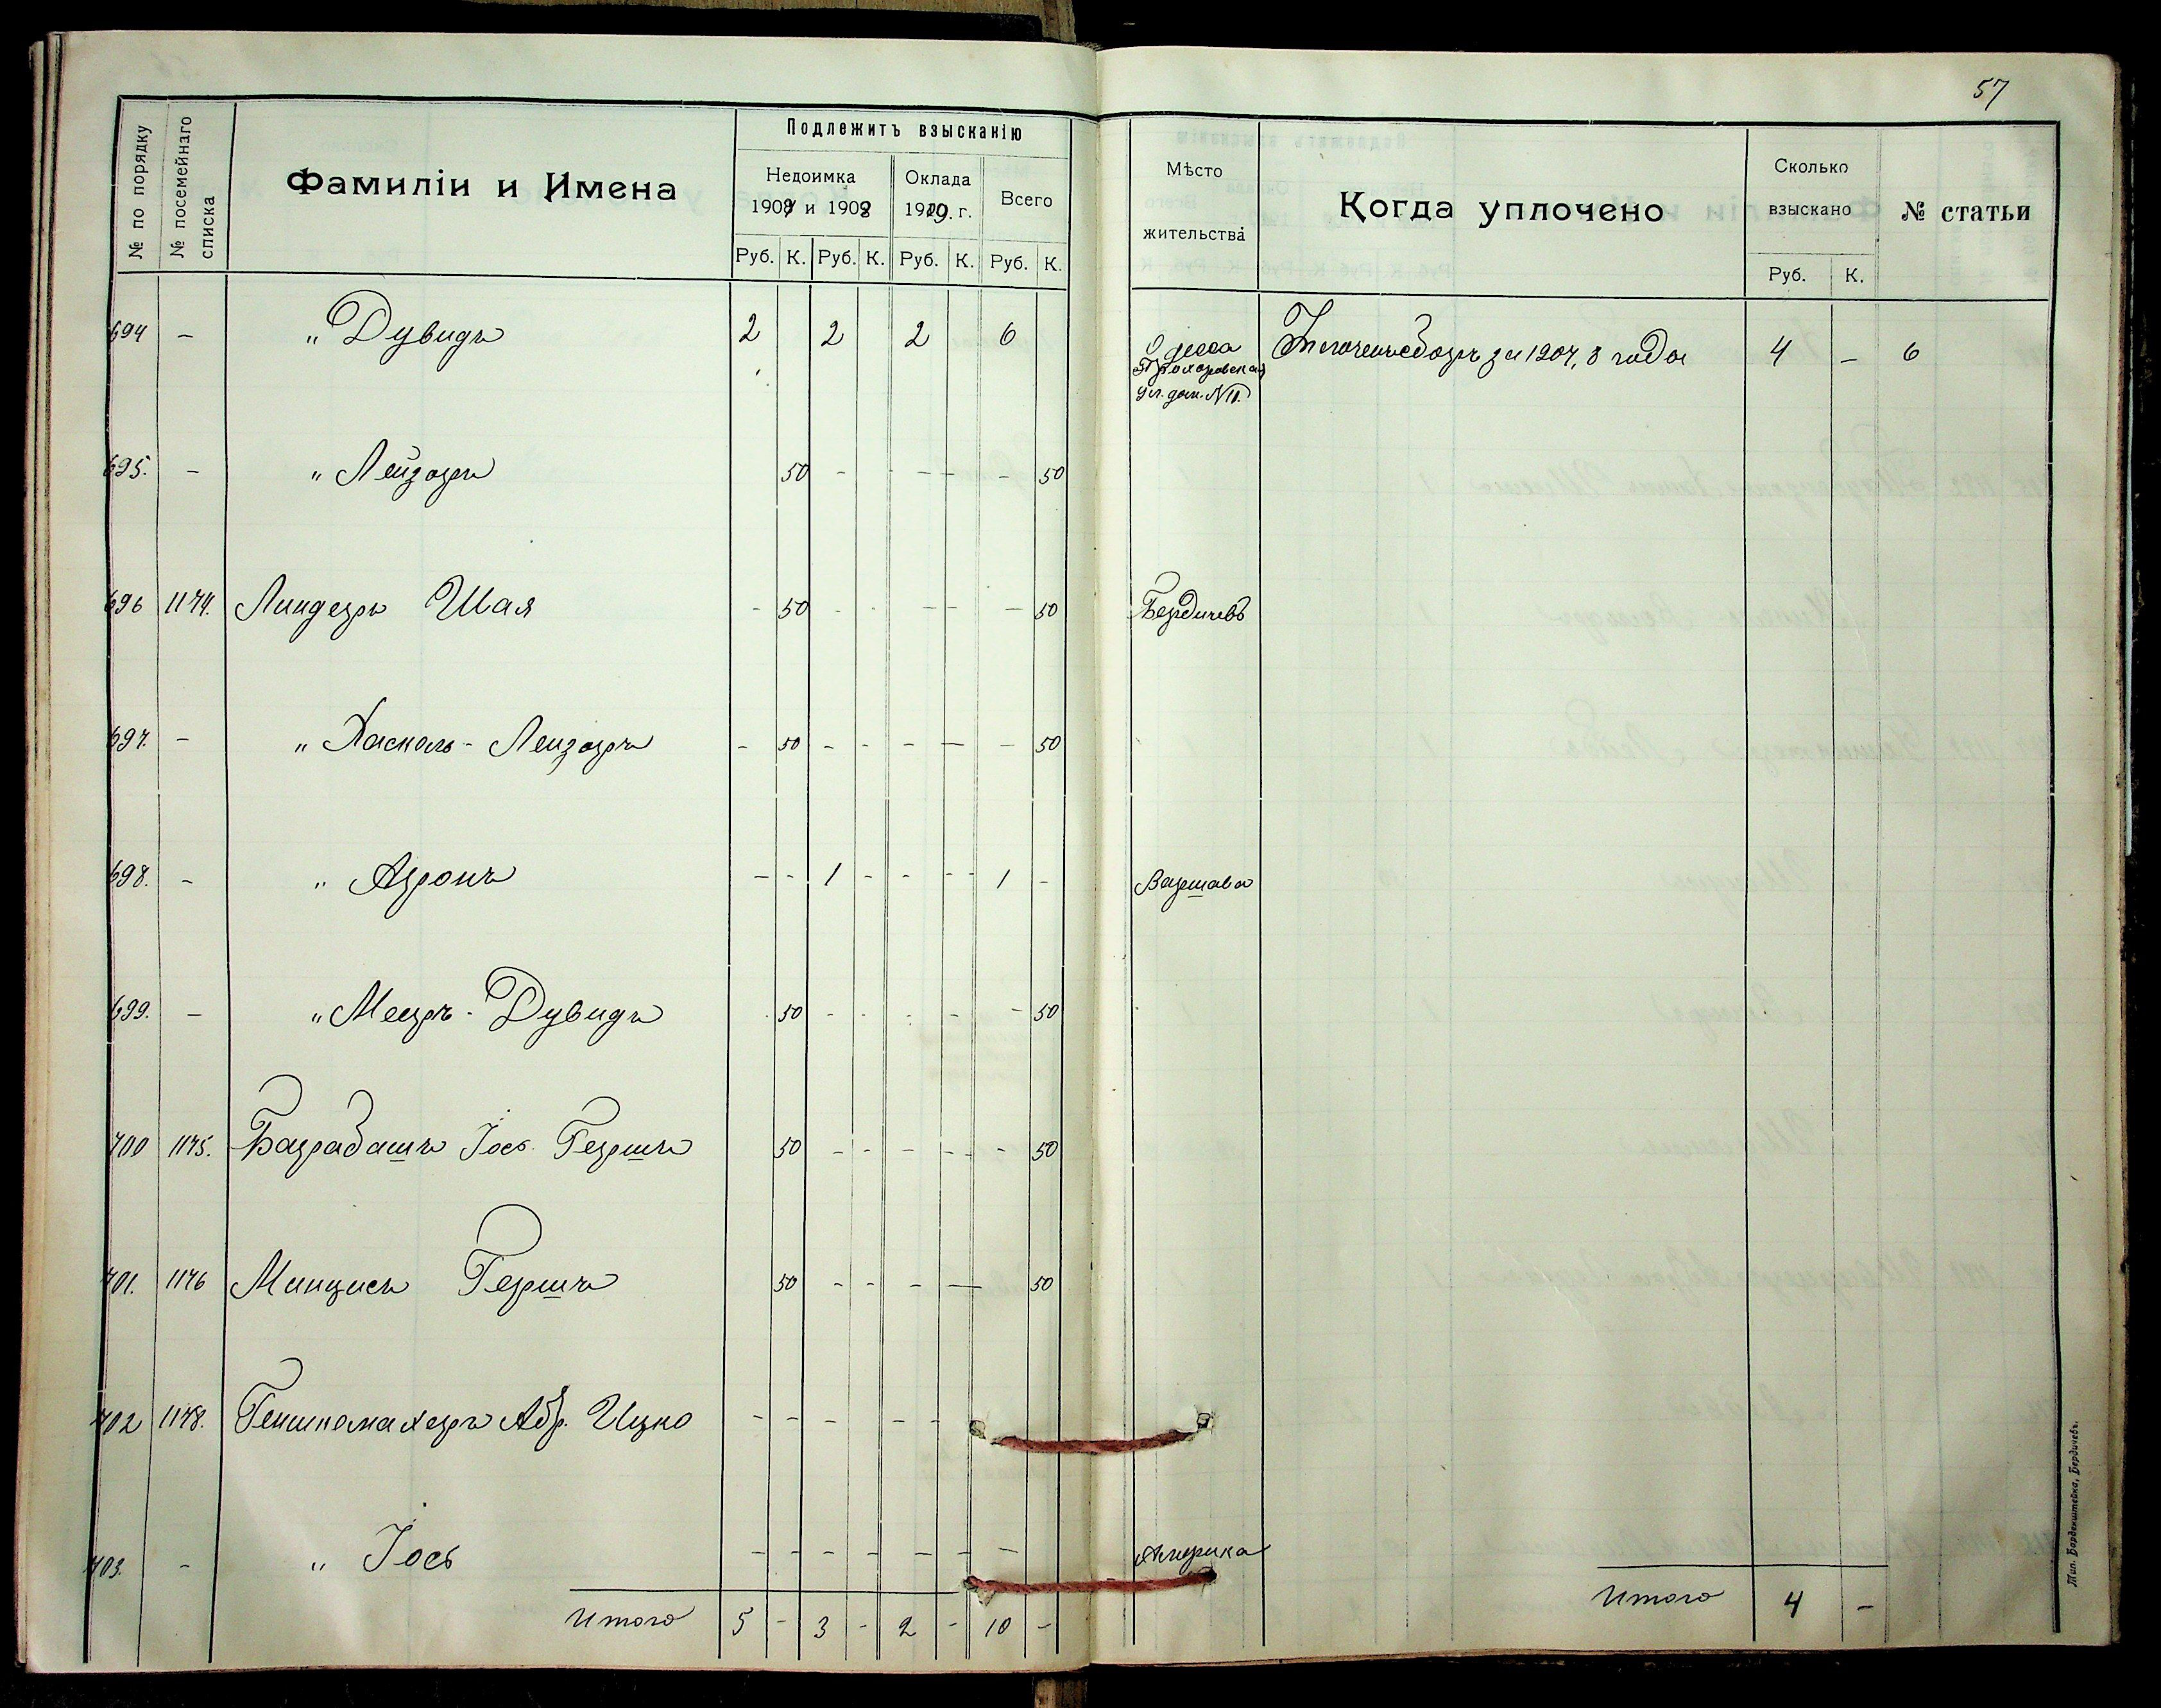 57
№ по порядку
№ посемейнаго списка
Фамиліи и Имена
Подлежитъ взысканію
Недоимка
1907 и 1908
Оклада
1909. г.
Всего
Руб. К. Руб. К. Руб. К. Руб. К.
Мѣсто
жительства
Когда уплочено
Сколько
взыскано
Руб. К.
№ статьи
694 — „ Дувидъ 2 2 2 6 Одесса за 1907, 8 года 4 — 6
Прохоровская
ул. дом. № 11.
695. — „ Лейзоръ 50 - - - - - 50
696 1174. Линдеръ Шая - 50 - - - - - 50 Бердичевъ
697. — „ Хаскель - Лейзоръ - 50 - - - - - 50
698. - „ Аронъ - - 1 - - - - 1 - Варшава
699. — „ Мееръ - Дувидъ 50 - - - - - 50
700 1175. Барабашъ Іос. Гершъ 50 - - - - - - 50
701. 1176 Минцисъ Гершъ 50 - - - — 50
702 1178. Абр. Ицко - - - - -
703. - „ Іось - - - - - - - Америка
Итого 5 - 3 - 2 - 10 -
Итого 4 -
Тип. Барденштейна, Бердичевъ.